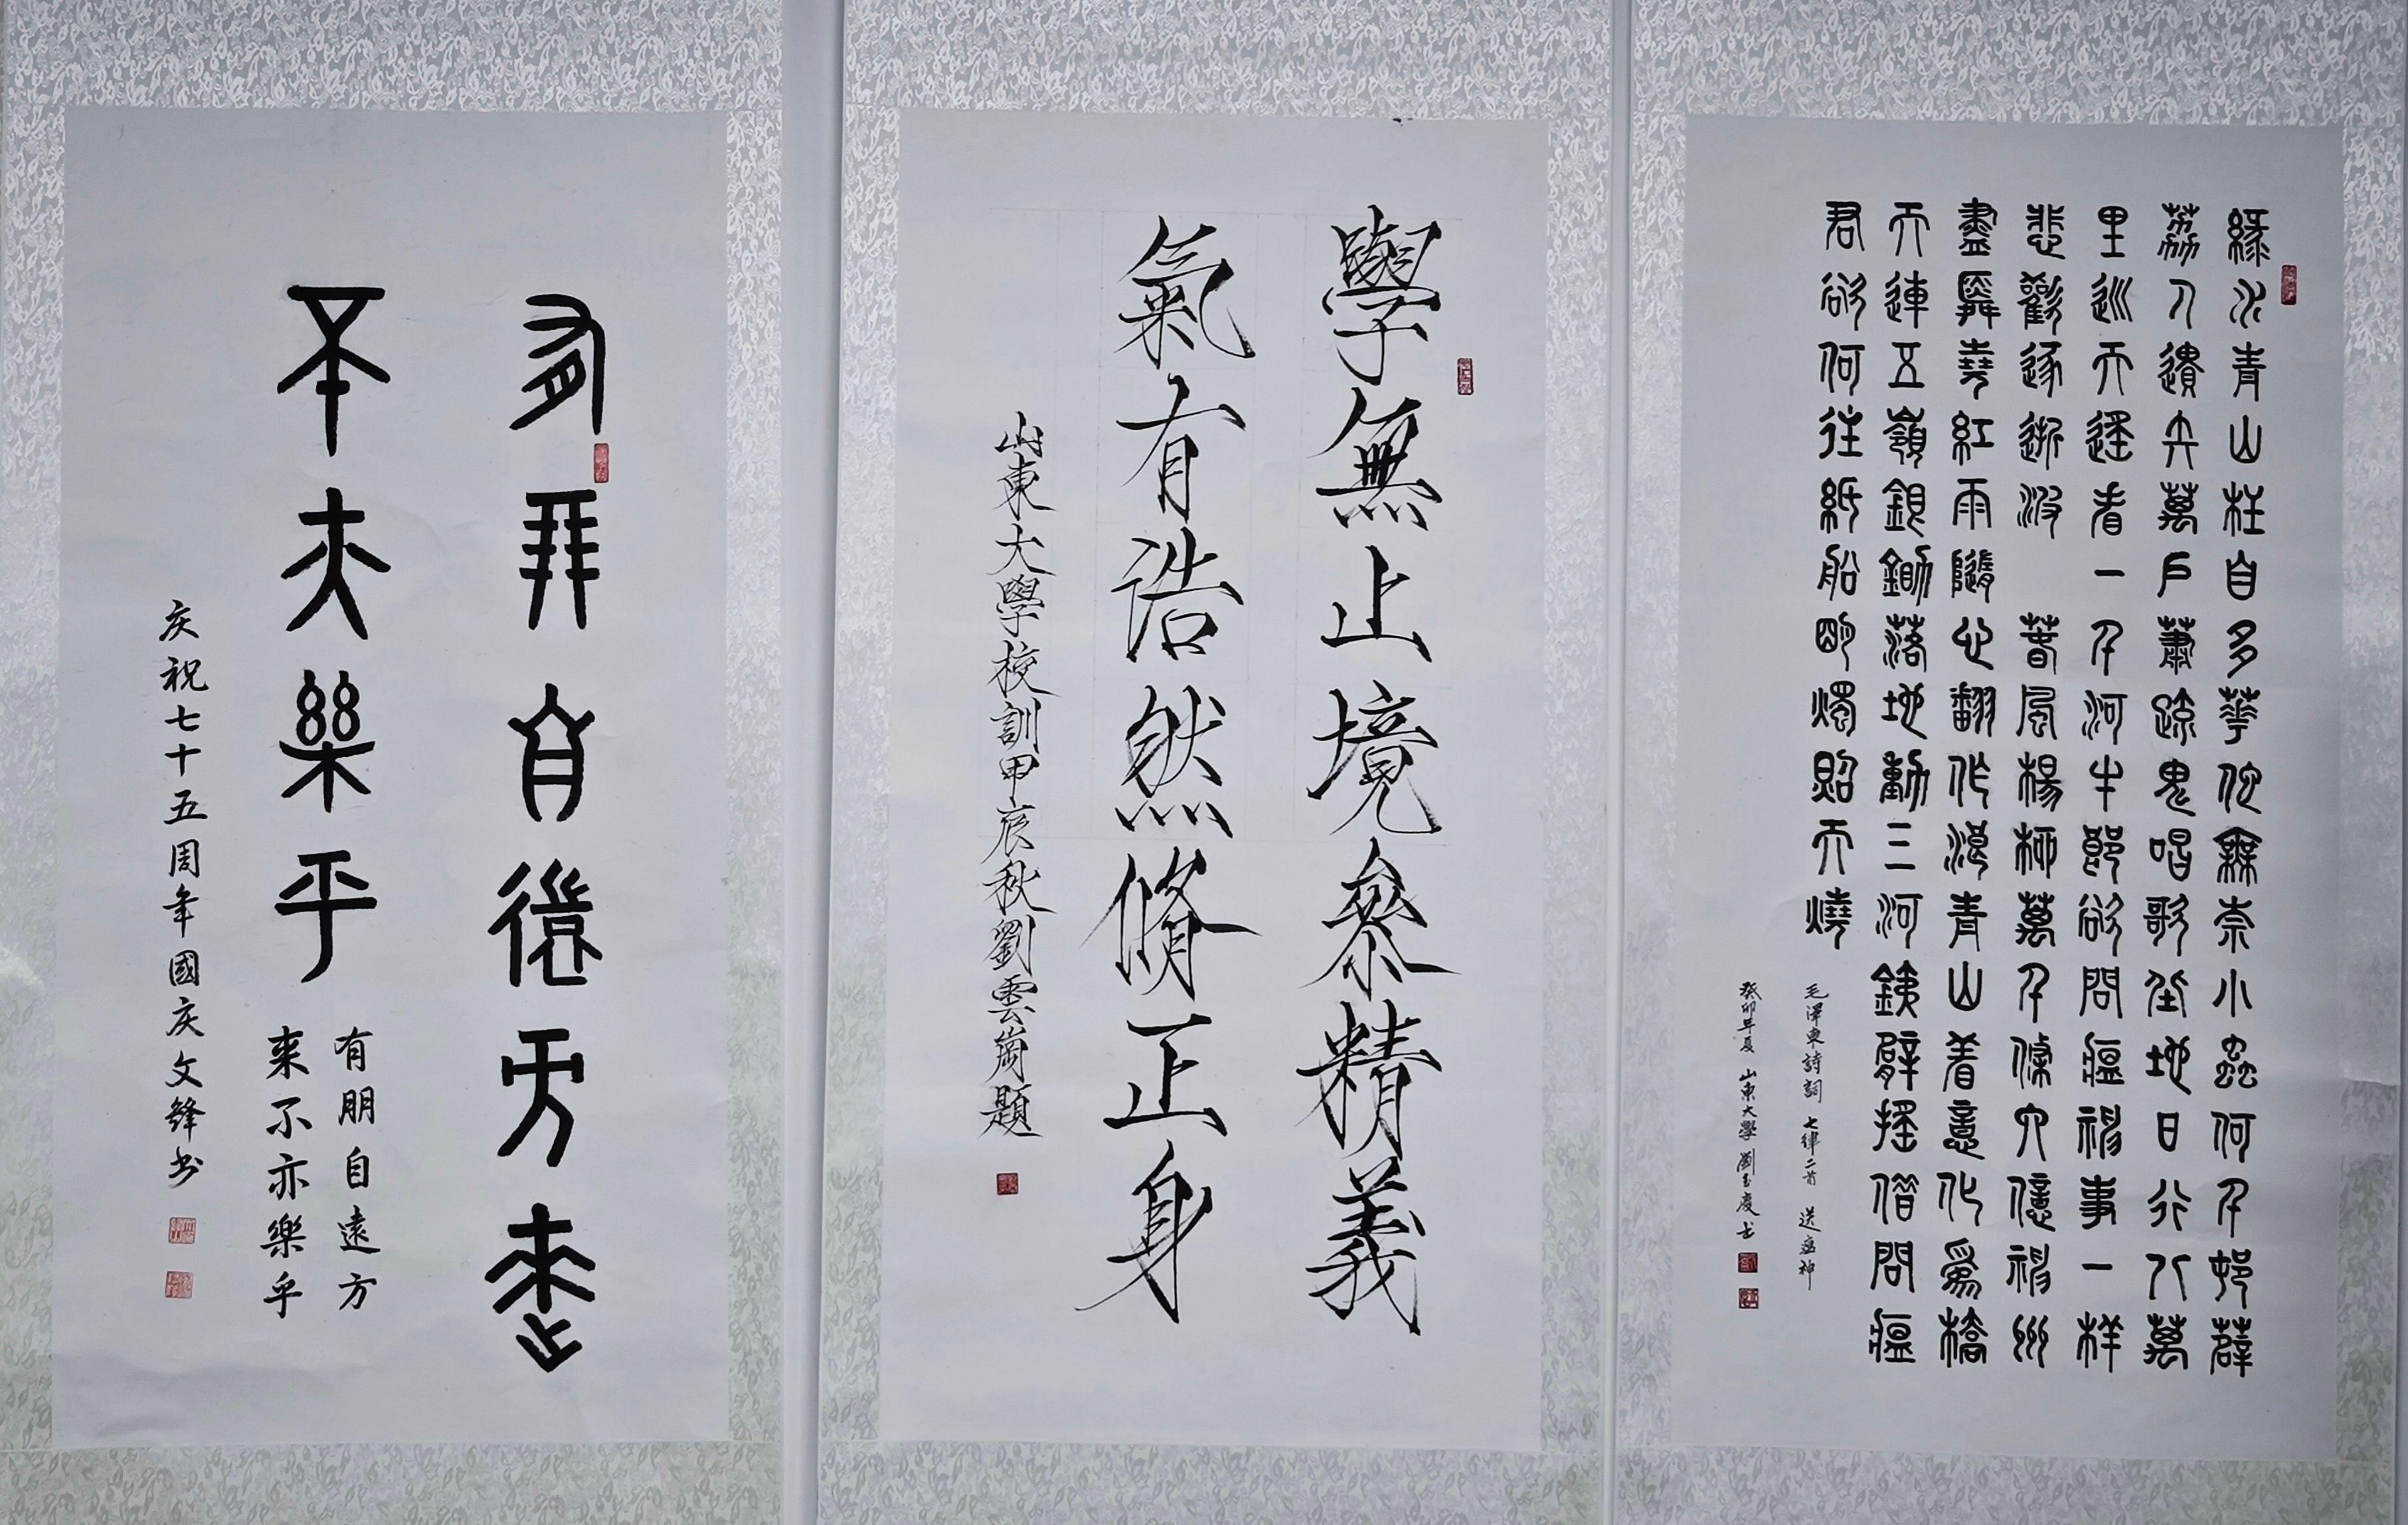 綠水青山枉自多華佗無奈小蟲何千邨薜
荔人遺矢萬戶蕭疏鬼唱歌坐地日行八萬
里巡天遙看一千河牛郎欲問瘟神事一樣
悲歡逐逝波 春風楊柳萬千條六億神州
盡舜堯紅雨隨心翻作浪青山着意化為橋
天連五嶺銀鋤落地動三河鐵臂搖借問瘟
君欲何往紙船明燭照天燒
毛澤東詩詞 七律二首 送瘟神
癸卯年夏 山東大學 劉玉慶书
學無止境參精義
氣有浩然脩正身
山東大學校訓甲辰秋劉雲崗題
有朋自遠方來
不亦樂乎
有朋自遠方
来不亦樂乎
庆祝七十五周年國庆文鋒书